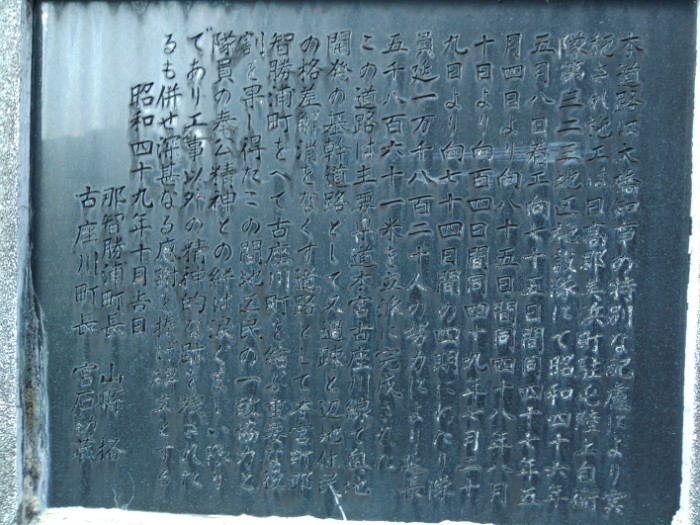 本道路は大橋知事の特別な配慮により実
施され施工は日高郡美浜町駐屯陸上自衛
隊第三二三地区施設隊にて昭和四十六年
五月八日着工向七十五日間同四十七年五
月四日より向八十五日間同四十八年八月
十日より向百四日間同四十九年七月二十
九日より向七十四日間の四期にわたり隊
員延一万千八百二十人の努力により延長
五千八百六十一米を立派に完成された
この道路は主要県道本宮古座川線で奥地
開発の基幹道路として又過疎と辺地住民
の格差解消をなくす道路として本宮町那
智勝浦町をへて古座川町を結ぶ重要な役
割を果し得たこの間地区民の一致協力と
隊員の奉公精神との絆は涙ぐましい限り
であり工事以外の精神的な跡を残された
るも併せ深甚なる感謝を捧げ碑文とする
昭和四十九年十月吉日
那智勝浦町長 山縣
古座川町長 宮石